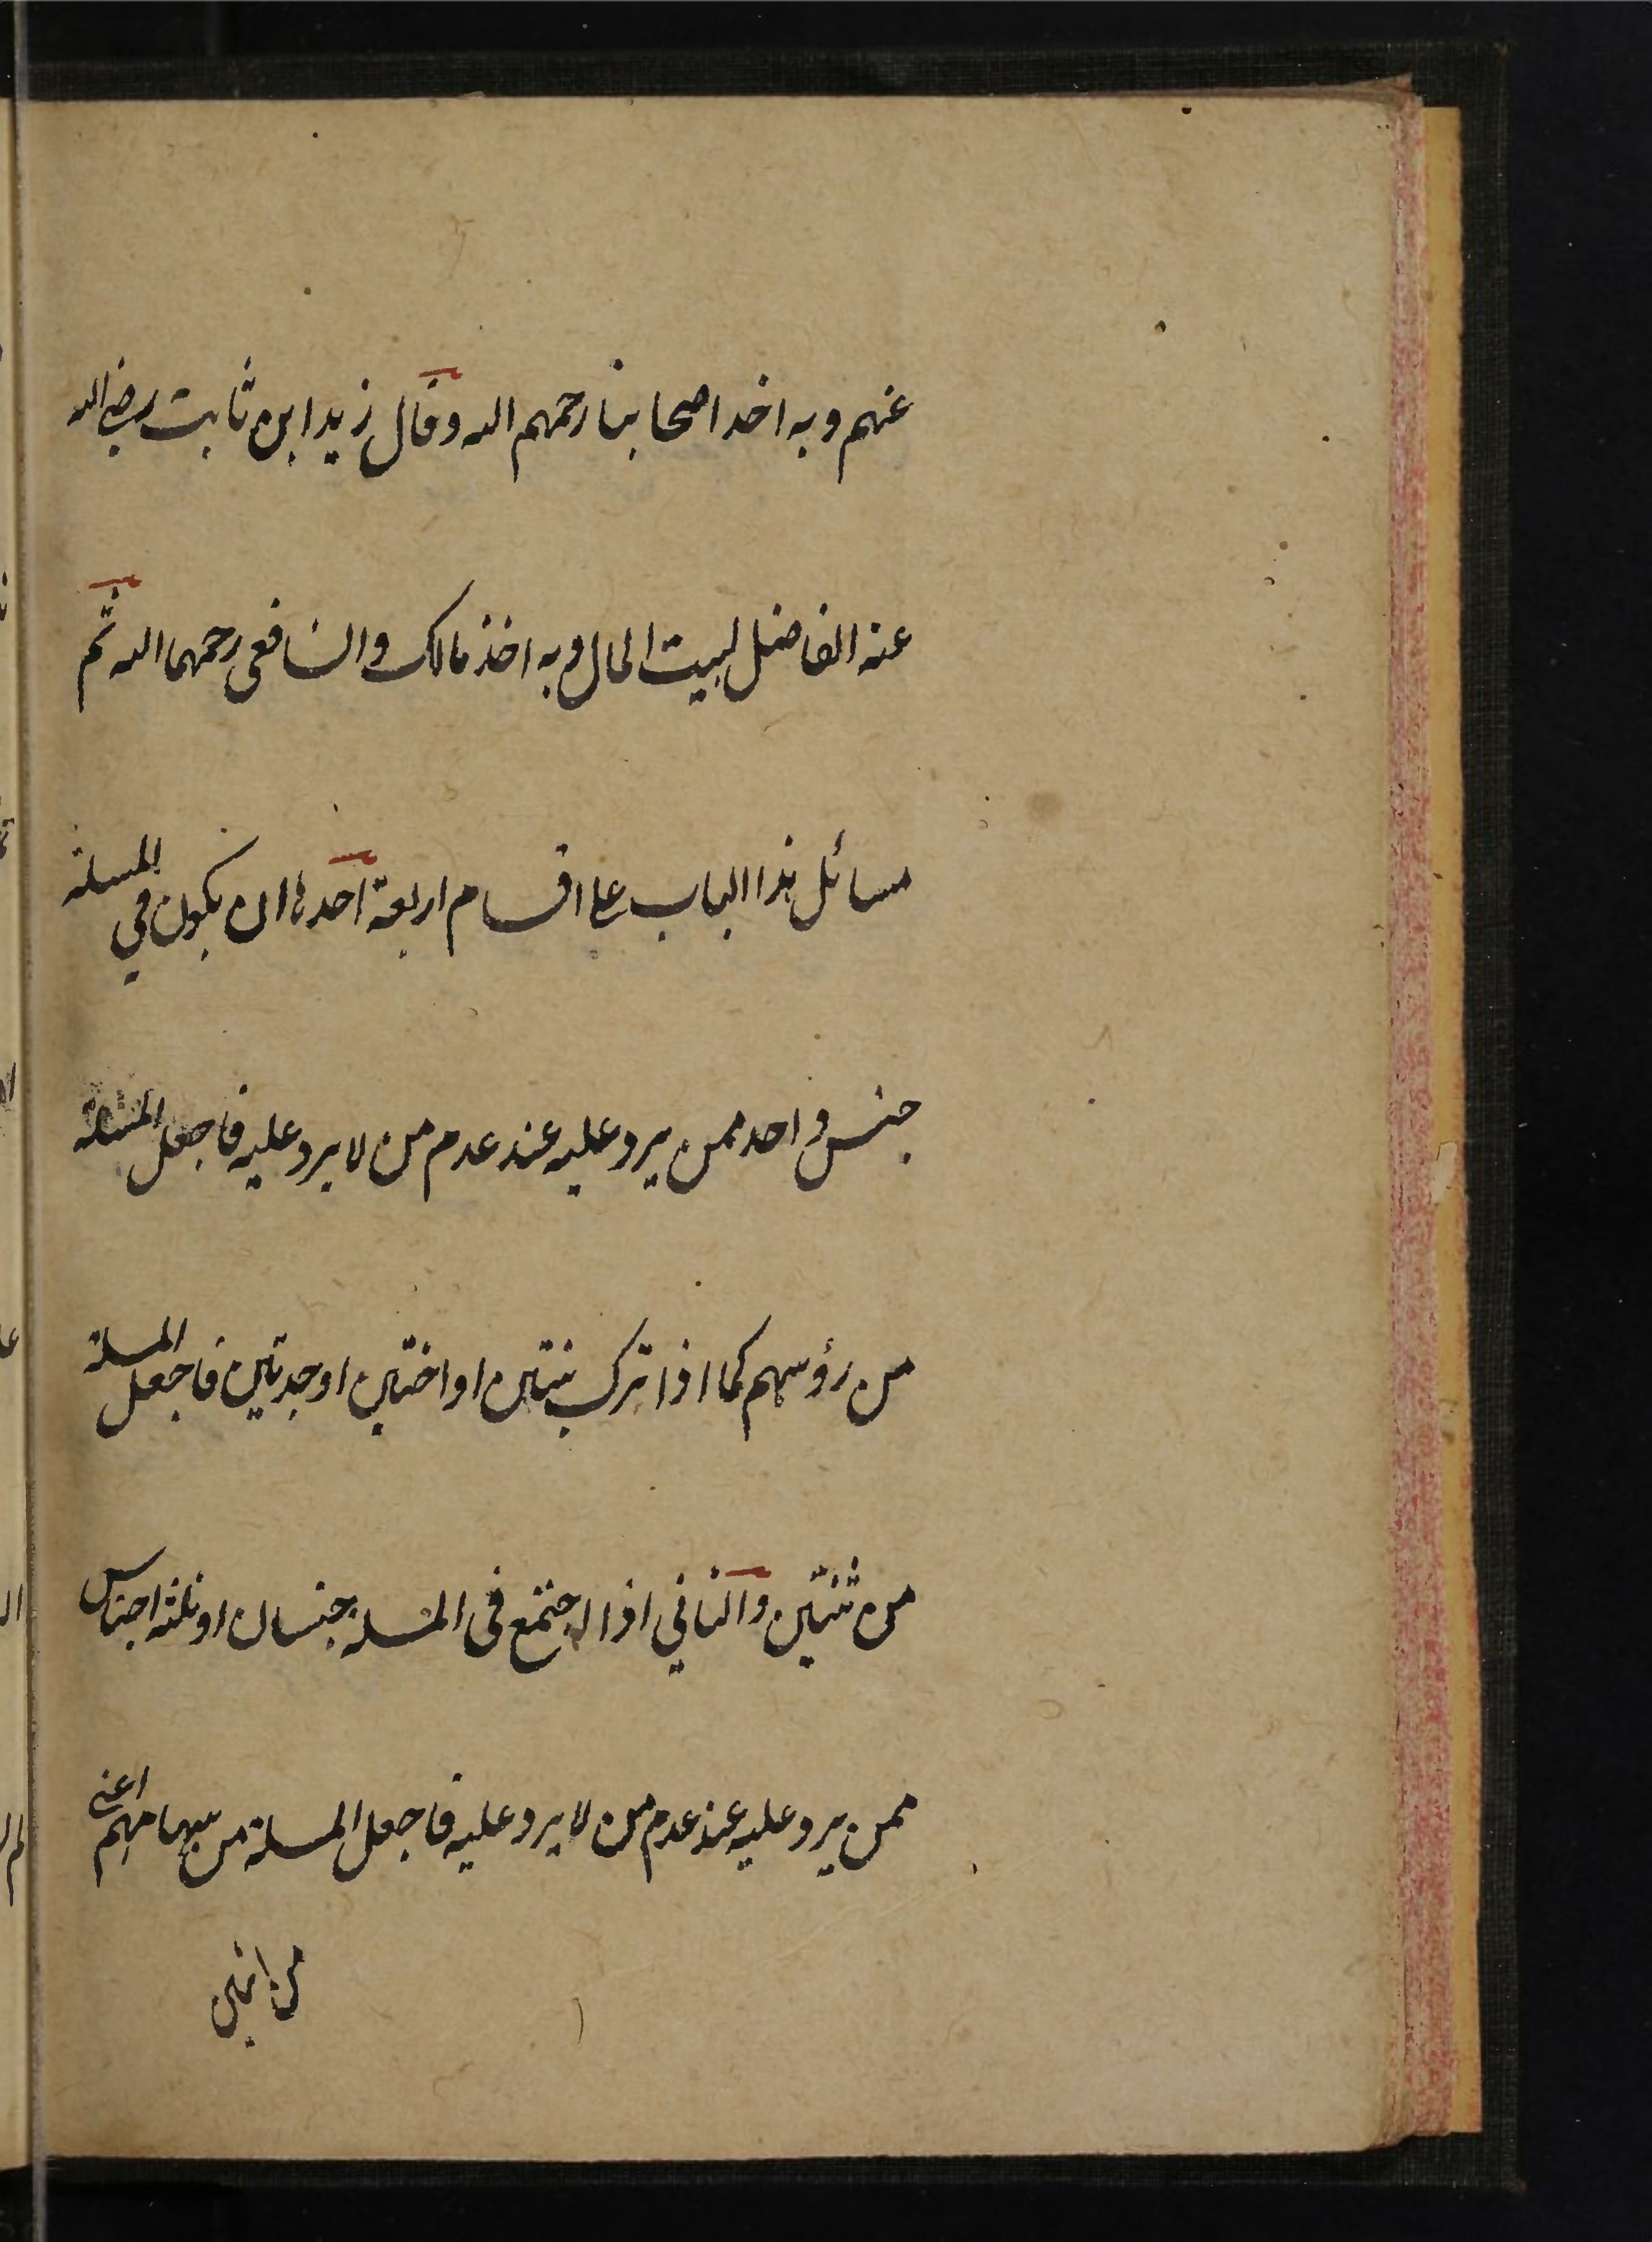 عنهم وبه اخذ اصحابنا رحمهم الله وقال زيد ابن ثابت رضي الله
عنه الفاضل لبيت المال وبه اخذ مالك والشافعي رحمهما الله ثم
مسائل هذا الباب على اقسام اربعة احدها ان يكون في المسئلة
جنس واحد ممن يرد عليه عند عدم من لا يرد عليه فاجعل المسئلة
من رؤسهم كما اذا ترك بنتين او اختين او جدتين فاجعل المسئلة
من ثنتين والثاني اذا اجتمع في المسئلة جنسان او ثلثة اجناس
ممن يرد عليه عند عدم من لا يرد عليه فاجعل المسئلة من سهامهم اعني
من اثنين